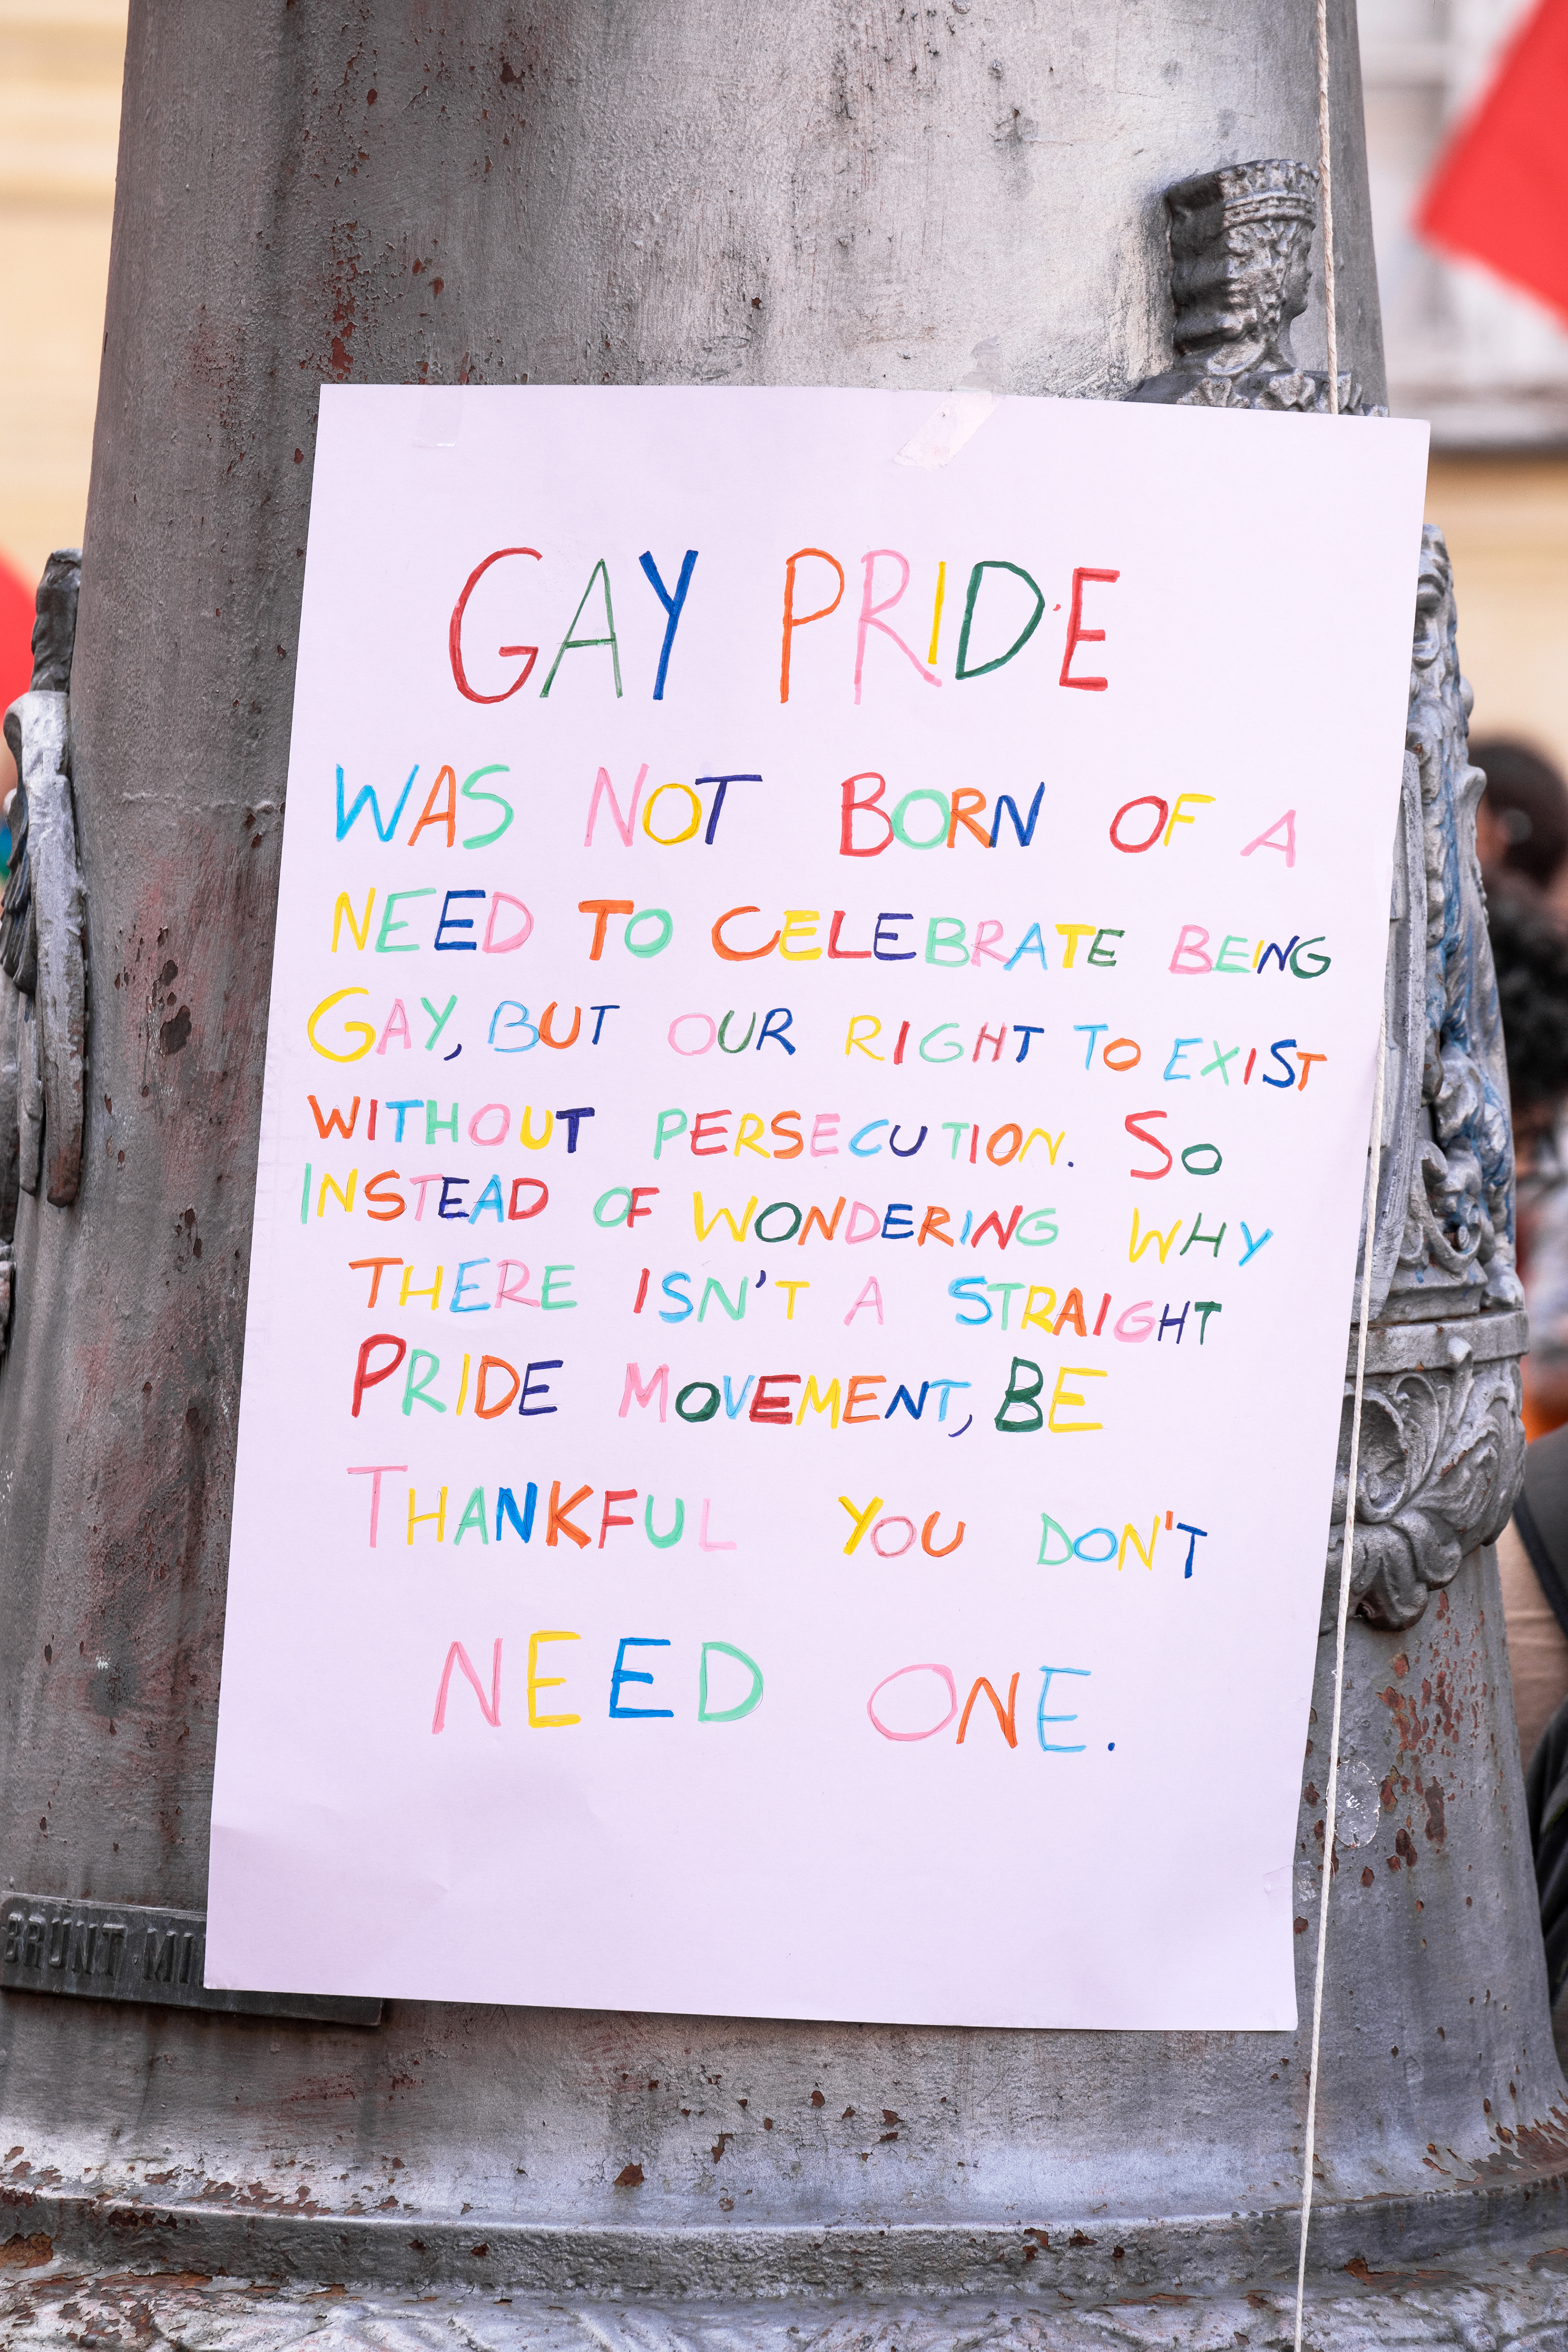 GAY PRIDE
WAS NOT BORN OF A
NEED TO CELEBRATE BEING
GAY, BUT OUR RIGHT TO EXIST
WITHOUT PERSECUTION. SO
INSTEAD OF WONDERING WHY
THERE ISN'T A STRAIGHT
PRIDE MOVEMENT, BE
THANKFUL YOU DON'T
NEED ONE.
BRUNT